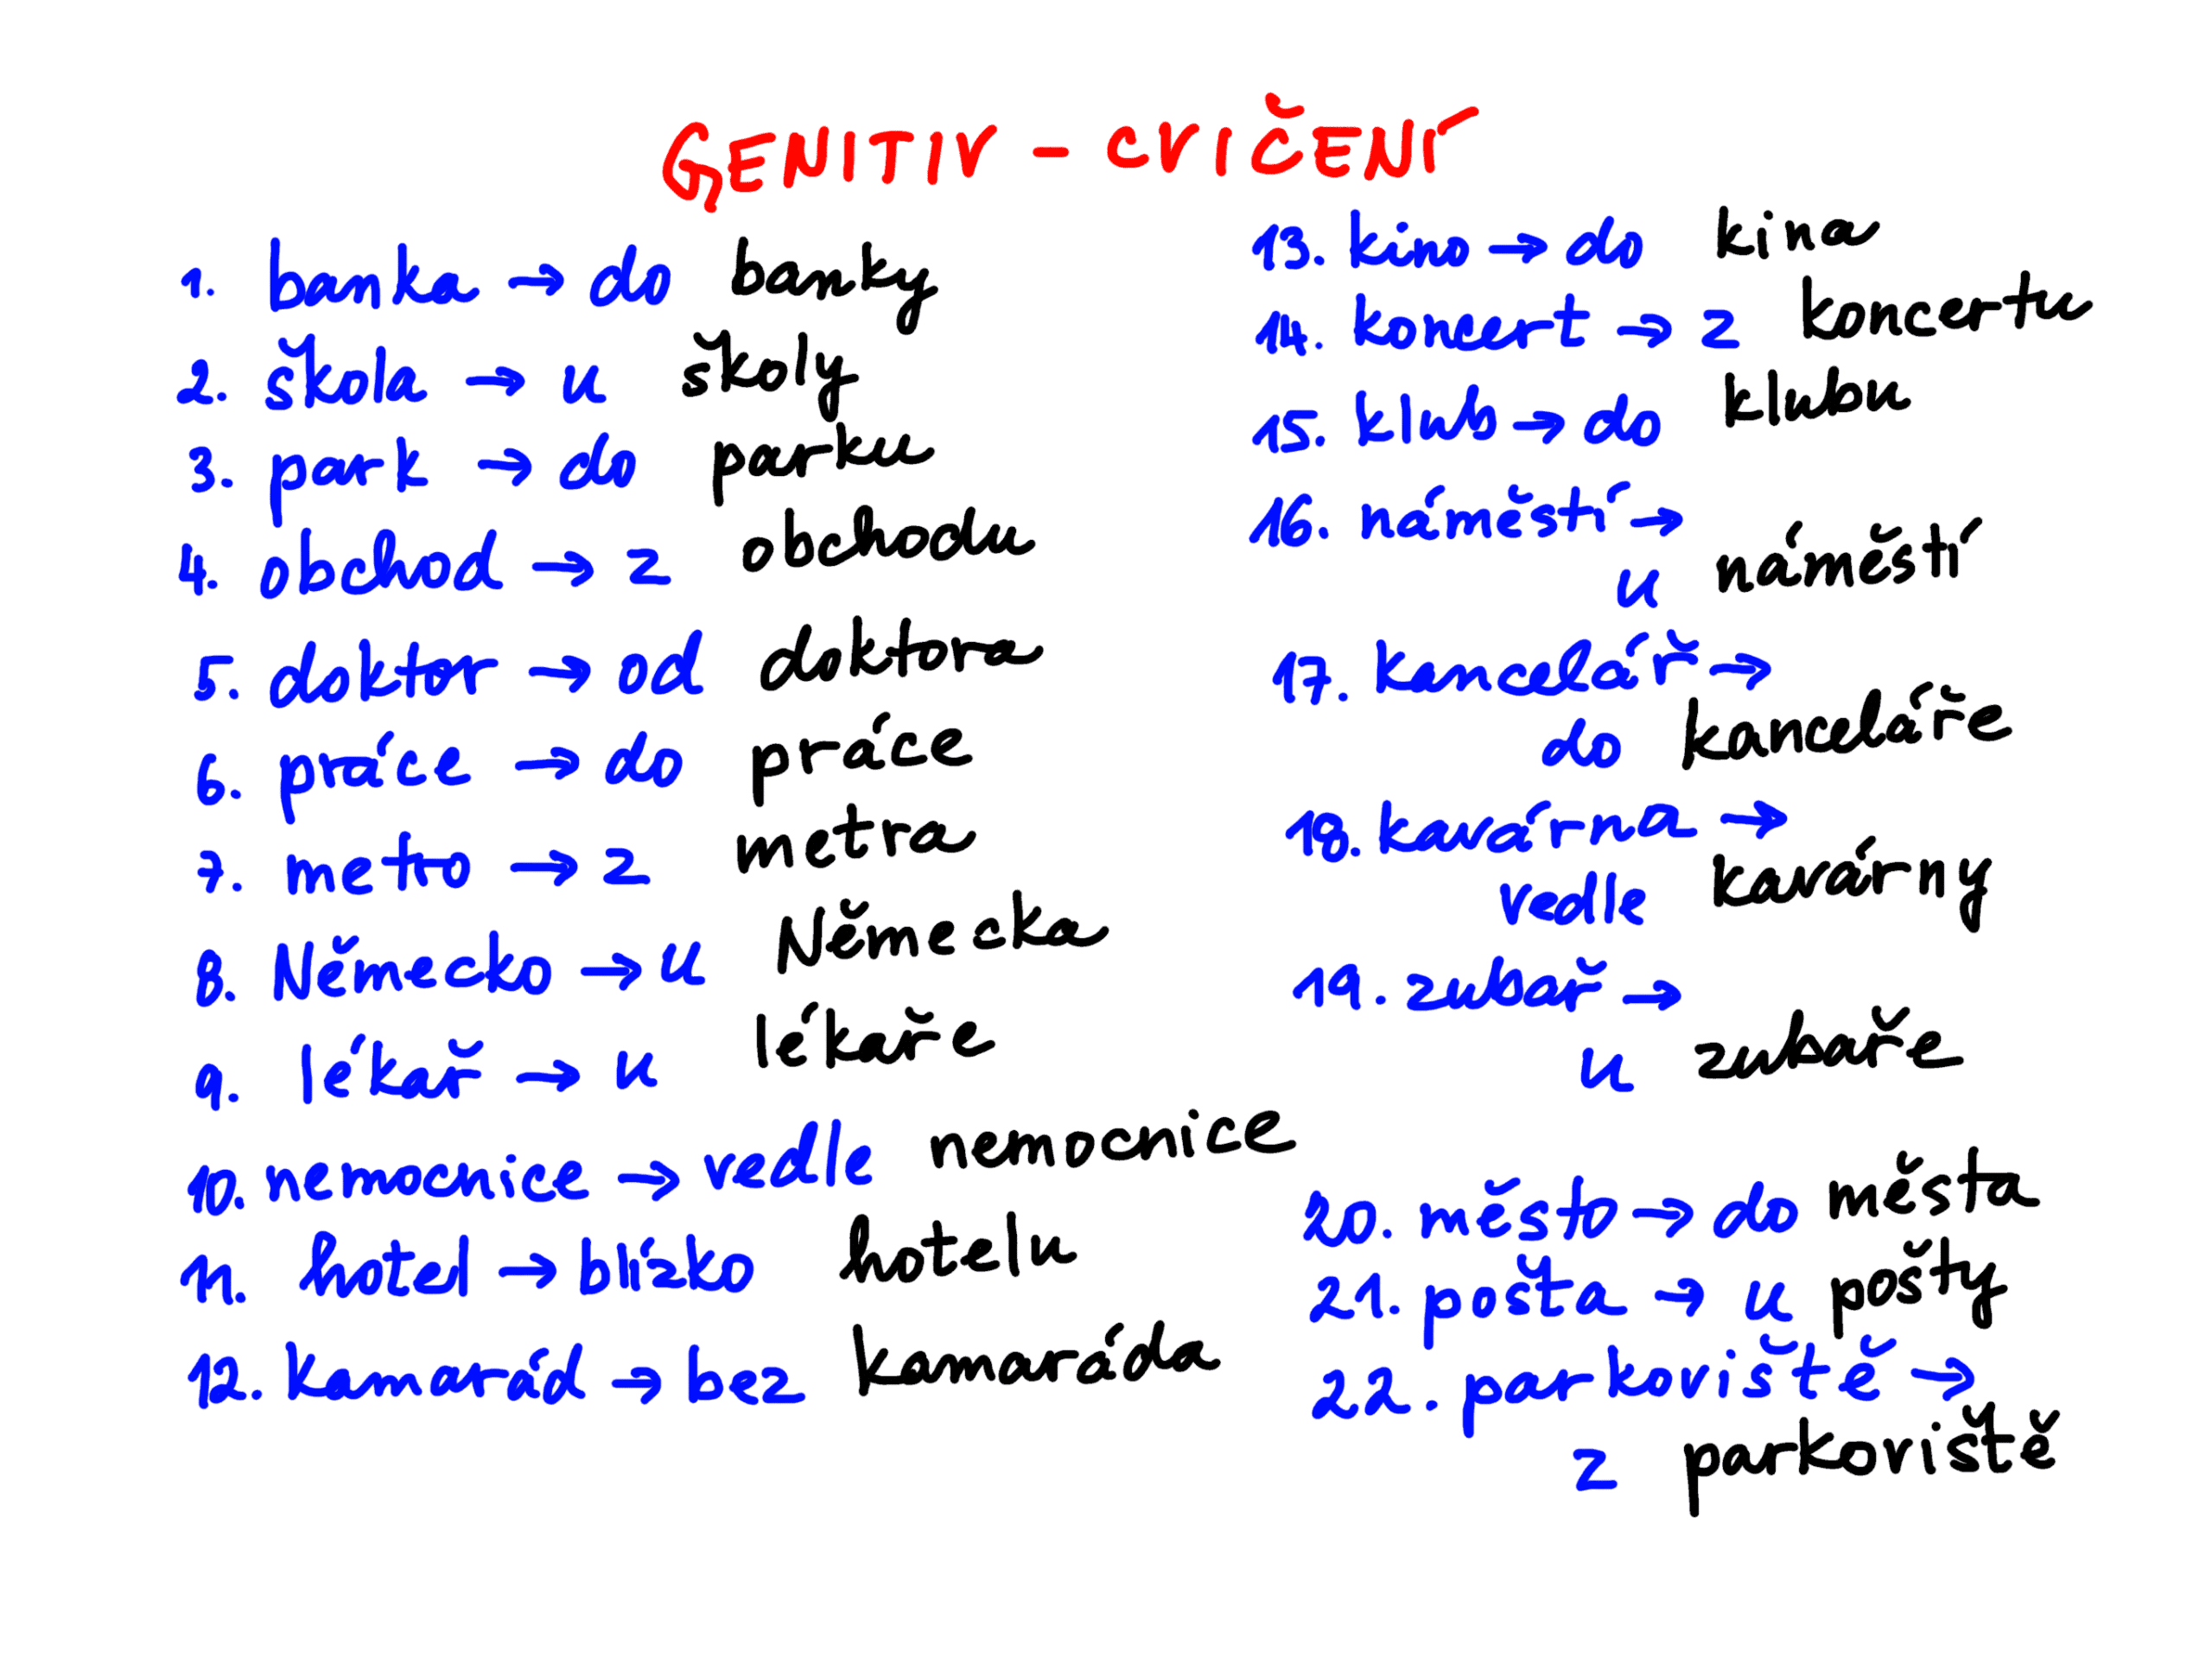 GENITIV - CVIČENÍ
1. banka → do banky
2. škola → u školy
3. park → do parku
4. obchod → z obchodu
5. doktor → od doktora
6. práce → do práce
7. metro → z metra
8. Německo → u Německa
9. lékař → u lékaře
10. nemocnice → vedle nemocnice
11. hotel → blízko hotelu
12. kamarád → bez kamaráda
13. kino → do kina
14. koncert → z koncertu
15. klub → do klubu
16. náměstí →
u náměstí
17. kancelář →
do kanceláře
18. kavárna →
vedle kavárny
19. zubař →
u zubaře
20. město → do města
21. pošta → u pošty
22. parkoviště →
z parkoviště